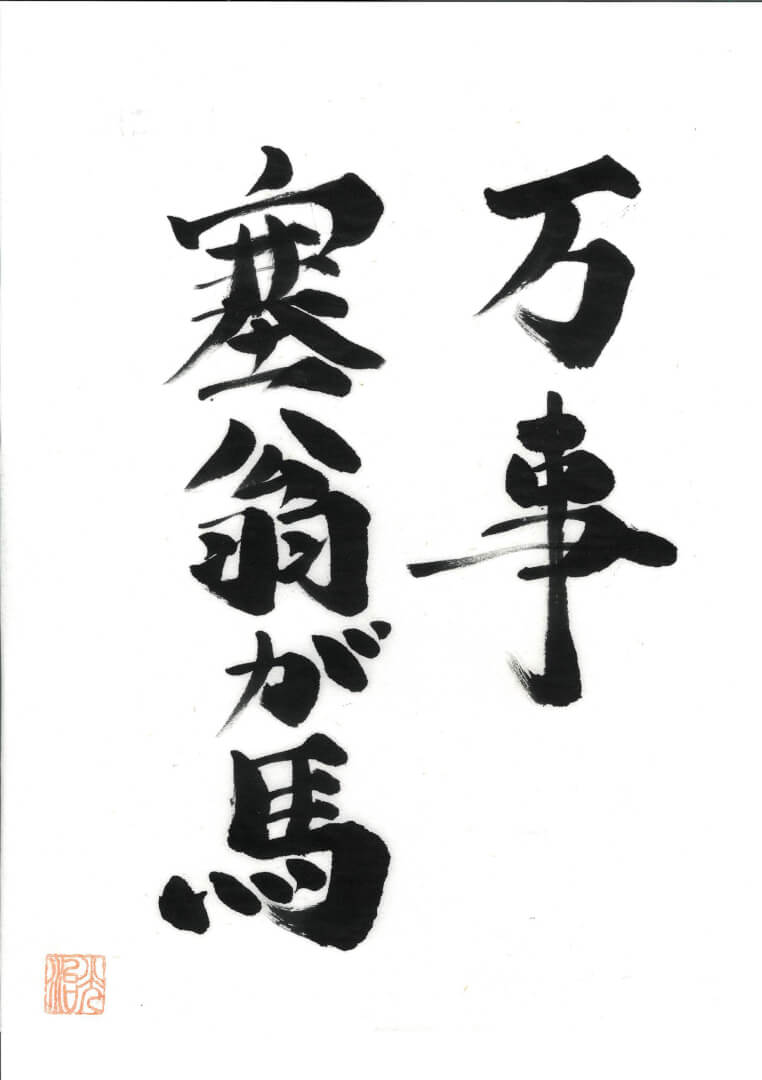 万事
塞翁が馬